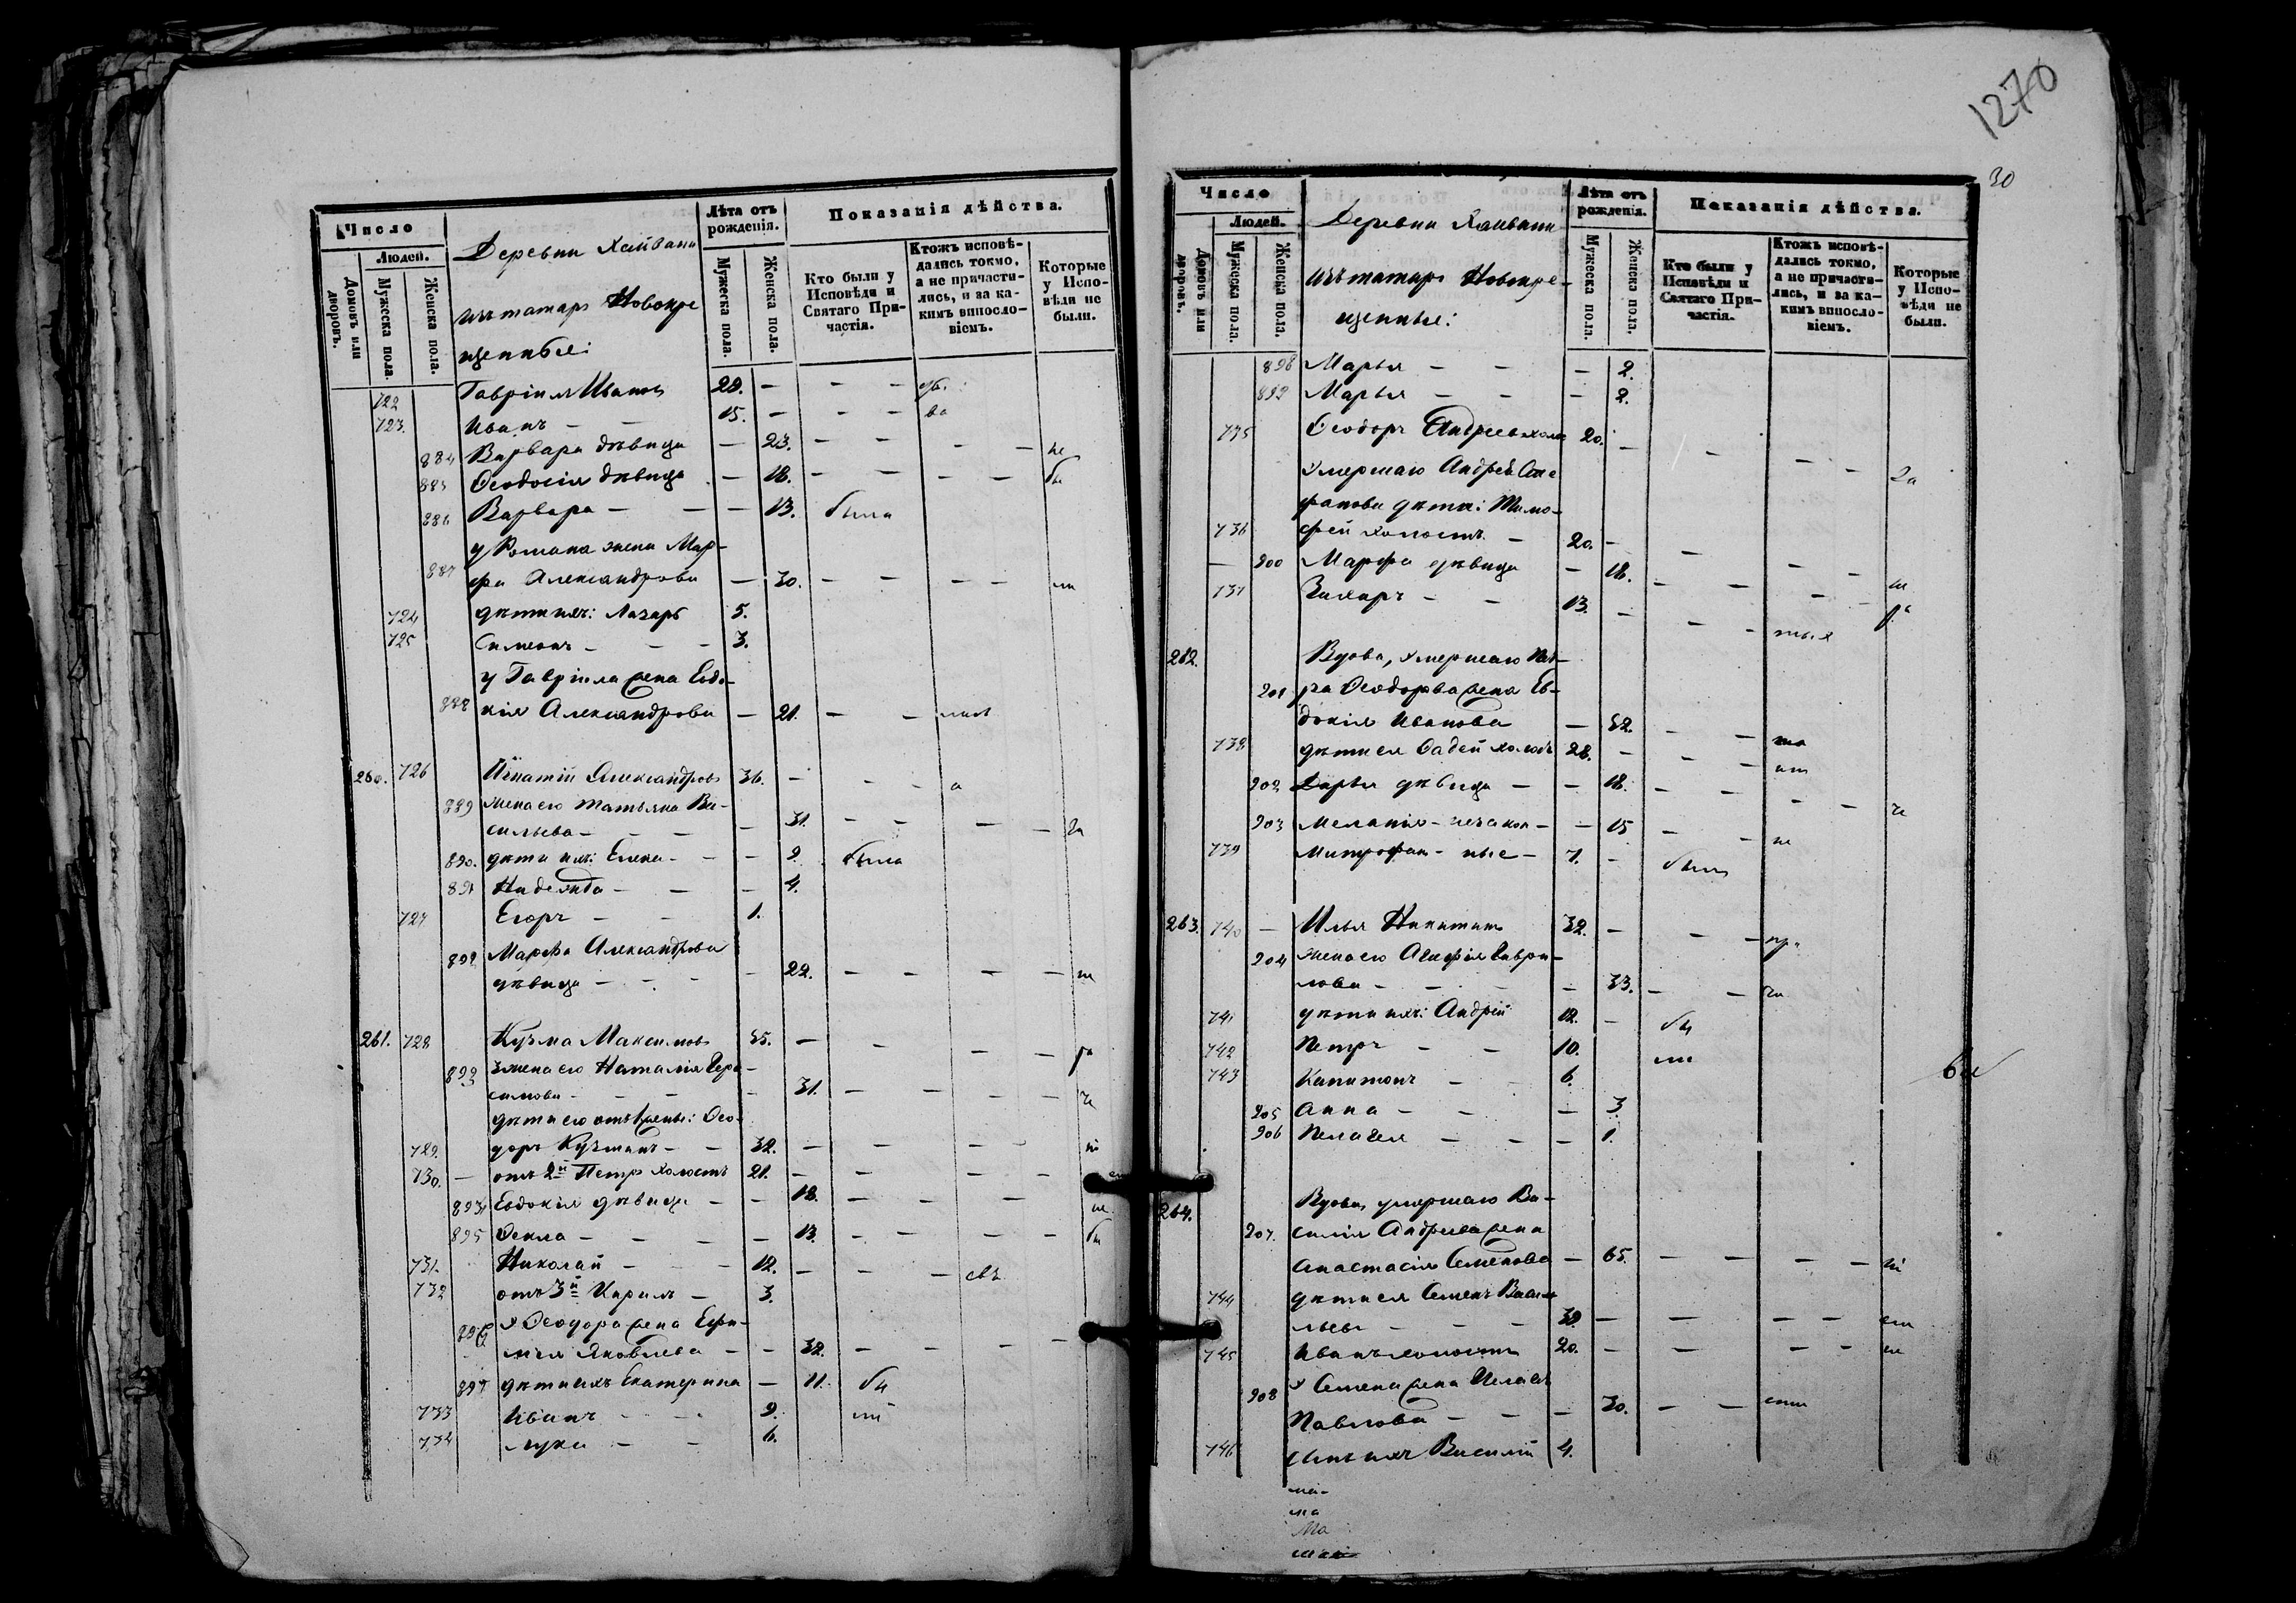 Число
Людей.
Домовъ или дворовъ.
Мужеска пола.
Женска пола.
Деревни Хайвани
изъ татаръ Новокре
щенныѣ:
Лѣта отъ рожденія.
Мужеска пола.
Женска пола.
Показанія дѣйства.
Кто были у Исповѣди и Святаго Причастія.
Ктожъ исповѣдались токмо, а не причастились, и за какимъ винословіемъ.
Которые у Исповѣди не были.
722 Гавріилъ Ивановъ 28. — — —
723. Иванъ — — 15. — — —
884 Варвара дѣвица — 23. — — — — не
885 Ѳеодосія дѣвица — 18. — — — — бы
886 Варвара — — — 13. была
у Романа жена Мар-
887 фа Александрова — 30. — — — —
724 дѣти ихъ: Лазарь 5.
725 Симеонъ — — — 3.
у Гавріила жена Евдо-
888 кія Александрова — 21. — —
260. 726 Игнатій Александровъ 36. — — —
889 жена его Татьяна Ва-
сильева — — — — 31. — — — —
890. дѣти ихъ: Елена — — — 9. была
891 Надежда — — — 4.
727 Егоръ — — 1.
892 Марфа Александрова
дѣвица — — — — 22. — — — — не
261. 728 Кузма Максимовъ 55. — — —
893 жена его Наталія Гера-
симова — — — — 31. — — — —
дѣти его отъ 1 жены: Ѳео-
729. доръ Кузминъ — — 32. — — — —
730. — отъ 2й Петръ холостъ 21. — — — —
894 Евдокія дѣвица — — 18. — — — не
895 Ѳекла — — — — 13. — — — — бы
731. Николай — — — 12. — — —
732 отъ 3й Кирилъ — 3.
896 у Ѳеодора жена Ефи-
мія Яковлева — — 32. — — — —
897 дѣти ихъ Екатерина — 11. бы
733 Иванъ — — 9. ли
734 Лука — — 6.
1270
30
Число
Людей.
Домовъ или дворовъ.
Мужеска пола.
Женска пола.
Деревни Хайвани
изъ татаръ Новокре-
щенные:
Лѣта отъ рожденія.
Мужеска пола.
Женска пола.
Показанія дѣйства.
Кто были у Исповѣди и Святаго Причастія.
Ктожъ исповѣдались токмо, а не причастились, и за какимъ винословіемъ.
Которые у Исповѣди не были.
898 Марья — — — 2.
899 Марья — — — 2.
735 Ѳеодоръ Андреевъ холос 20. — — — —
Умершаго Андрея Сте
фанова дѣти: Тимо-
736 фей холостъ — 20. — — — —
— 900 Марфа дѣвица — 18. — — — —
737 Захаръ — — 13. — — —
262. Вдова, умершаго Пет-
901 ра Ѳеодорова жена Ев-
докія Иванова — 52. — —
738 дѣти ея Фадей холостъ 28. — — —
902 Дарья дѣвица — — 18. — — — —
903 Меланія — незакон — — 15 — —
739 Митрофан — ные — 7. — былъ
263. 740 — Илья Никитинъ 32. — — —
904 жена его Агафія Гаври-
лова — — — — 33. — —
741 дѣти ихъ: Андрей 12. — бы
742 Петръ — — 10. ли
743 Капитонъ — — 6.
905 Анна — — — 3.
906 Пелагея — — — 1.
264. Вдова, умершаго Ва-
907. силія Андреева жена
Анастасія Семенова — 65. — — — —
744 дѣти ея Семенъ Васи-
льевъ — — — 32. — — — —
745 Иванъ холостъ 20. — — — —
908 у Семена жена
Павлова — — — 30. — —
746 сынъ ихъ Василій 4.